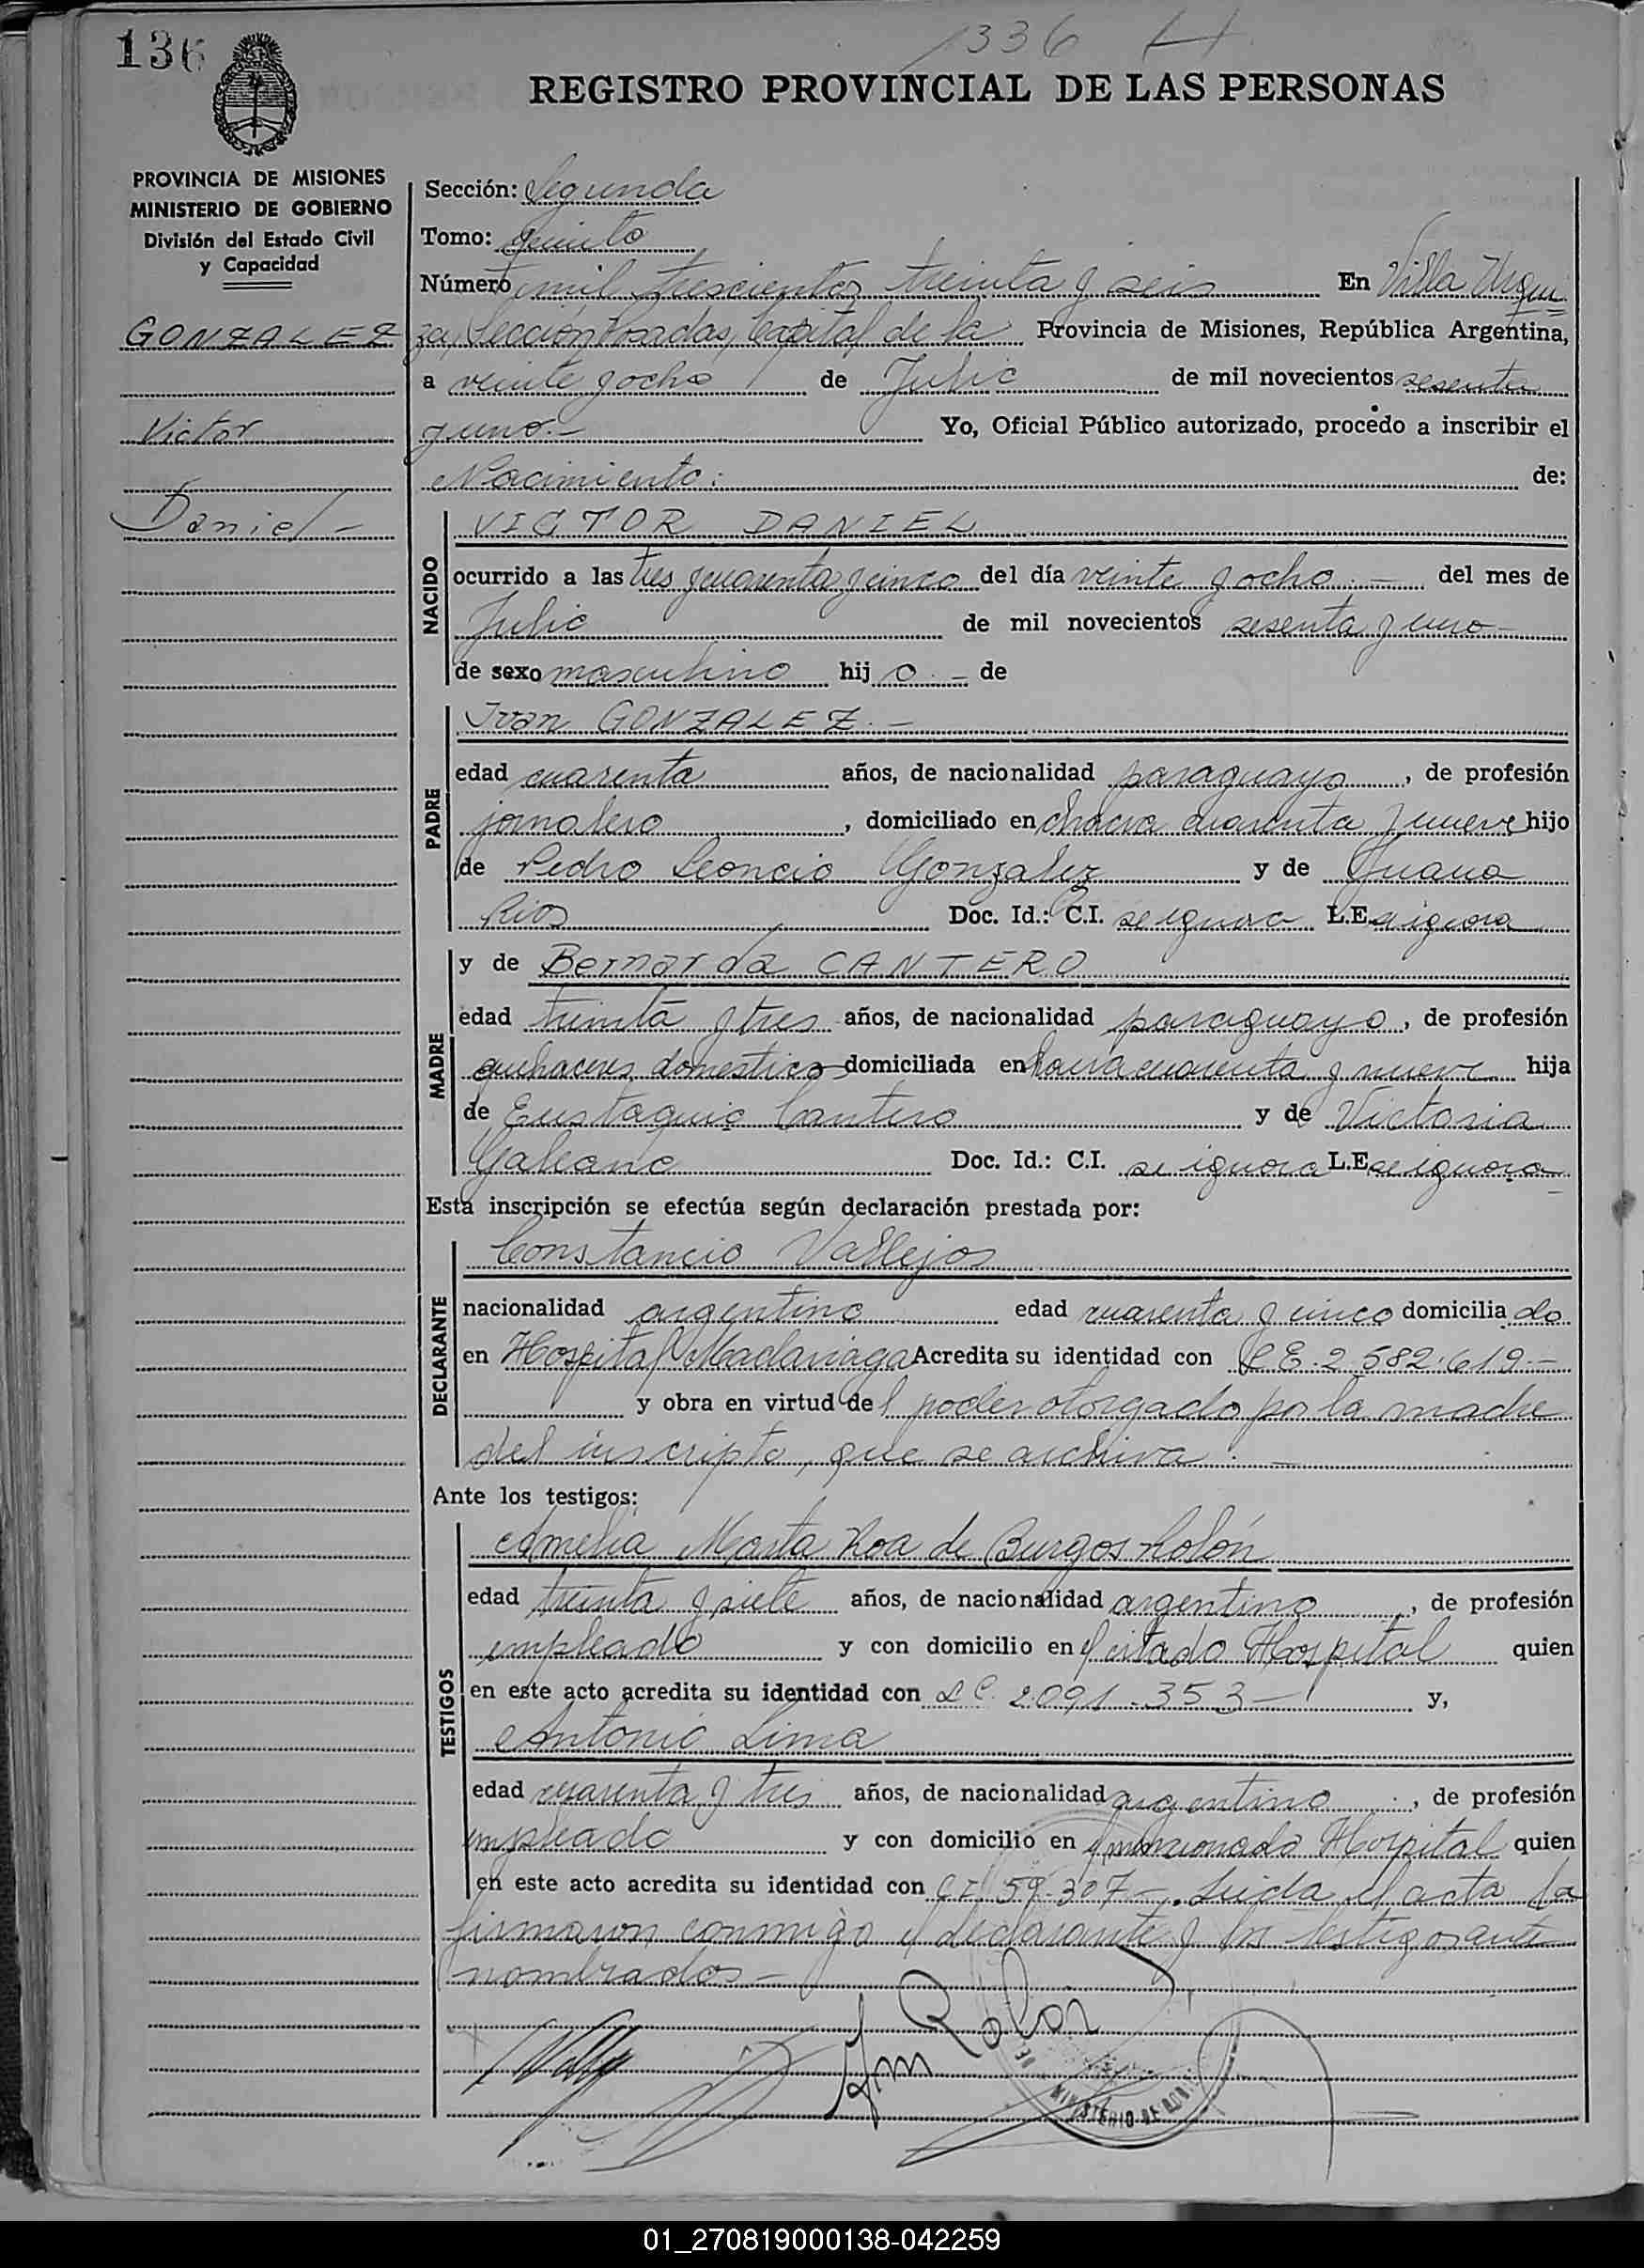 136
1336
REGISTRO PROVINCIAL DE LAS PERSONAS
PROVINCIA DE MISIONES
MINISTERIO DE GOBIERNO
División del Estado Civil
y Capacidad
GONZALEZ
Victor
Daniel -
Sección: Segunda
Tomo: quinto
Número mil trescientos treinta y seis En Villa Urqui
za, Sección Posadas, Capital de la Provincia de Misiones, República Argentina,
a veinte y ocho de Julio de mil novecientos sesenta
y uno.- Yo, Oficial Público autorizado, procedo a inscribir el
Nacimiento: de:
NACIDO
VICTOR DANIEL
ocurrido a las tres y cuarenta y cinco del día veinte y ocho.- del mes de
Julio de mil novecientos sesenta y uno
de sexo masculino hij o.- de
PADRE
Juan GONZALEZ.-
edad cuarenta años, de nacionalidad paraguayo, de profesión
jornalero, domiciliado en chacra cuarenta y nueve hijo
de Pedro Leoncio Gonzalez y de Juana
Rios Doc. Id.: C.I. se ignora L.E. se ignora
MADRE
y de Bernarda CANTERO
edad treinta y tres años, de nacionalidad paraguaya, de profesión
quehaceres domestico domiciliada en chacra cuarenta y nueve hija
de Eustaquio Cantero y de Victoria
Galeano Doc. Id.: C.I. se ignora L.E. se ignora
Esta inscripción se efectúa según declaración prestada por:
DECLARANTE
Constancio Vallejos
nacionalidad argentino edad cuarenta y cinco domicilia do
en Hospital Madariaga Acredita su identidad con L.E. 2.582.619.-
y obra en virtud del poder otorgado por la madre
del inscripto, que se archiva.-
Ante los testigos:
TESTIGOS
Amelia Marta Roa de Burgos Rolón
edad treinta y siete años, de nacionalidad argentino, de profesión
empleado y con domicilio en el citado Hospital quien
en este acto acredita su identidad con L.C. 2.091.353- y,
Antonio Lima
edad cuarenta y tres años, de nacionalidad argentino, de profesión
empleado y con domicilio en el mencionado Hospital quien
en este acto acredita su identidad con C.I. 59.307-. Leida el acta la
firmaron conmigo el declarante y los testigos ante
nombrados-
MINISTERIO DE
01_270819000138-042259